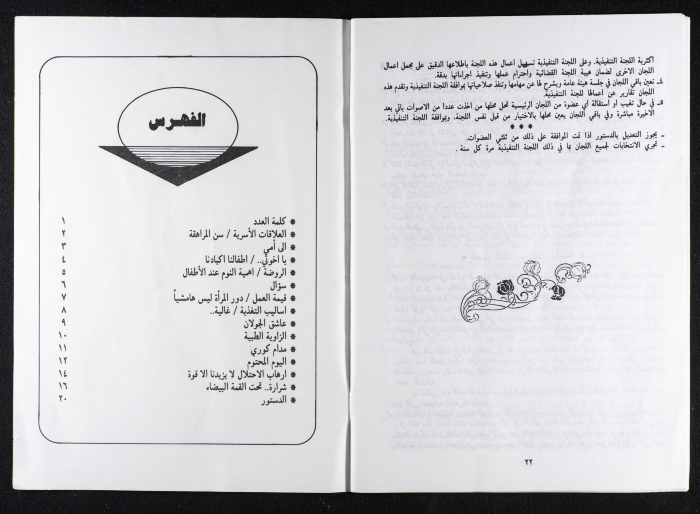 اكثرية اللجنة التنفيذية. وعلى اللجنة التنفيذية تسهيل اعمال هذه اللجنة باطلاعها الدقيق على مجمل اعمال
اللجان الاخرى لضمان هيبة اللجنة القضائية واحترام عملها وتنفيذ اجراءاتها بدقة.
٤ـ تعين باقي اللجان في جلسة هيئة عامة ويشرح لها عن مهامها وتنفذ صلاحياتها بموافقة اللجنة التنفيذية وتقدم هذه
اللجان تقارير عن اعمالها للجنة التنفيذية.
٥ـ في حال تغيب او استقالة أي عضوة من اللجان الرئيسية تحل محلها من اخذت عددا من الاصوات يأتي بعد
الاخيرة مباشرة وفي باقي اللجان يعين محلها بالاختيار من قبل نفس اللجنة، وبموافقة اللجنة التنفيذية.
* * *
ـ يجوز التعديل بالدستور اذا تمت الموافقة على ذلك من ثلثي العضوات.
ـ تجري الانتخابات لجميع اللجان بما في ذلك اللجنة التنفيذية مرة كل سنة .
٢٢
الفهرس
* كلمة العدد ١
* العلاقات الأسرية / سن المراهقة ٢
* الى أمي ٣
* يا اخوتي.. / اطفالنا اكبادنا ٤
* الروضة / اهمية النوم عند الأطفال ٥
* سؤال ٦
* قيمة العمل / دور المرأة ليس هامشياً ٧
* اساليب التغذية / غالية.. ٨
* عاشق الجولان ٩
* الزاوية الطبية ١٠
* مدام كوري ١١
* اليوم المحتوم ١٢
* ارهاب الاحتلال لا يزيدنا الا قوة ١٤
* شرارة.. تحت القمة البيضاء ١٦
* الدستور ٢٠